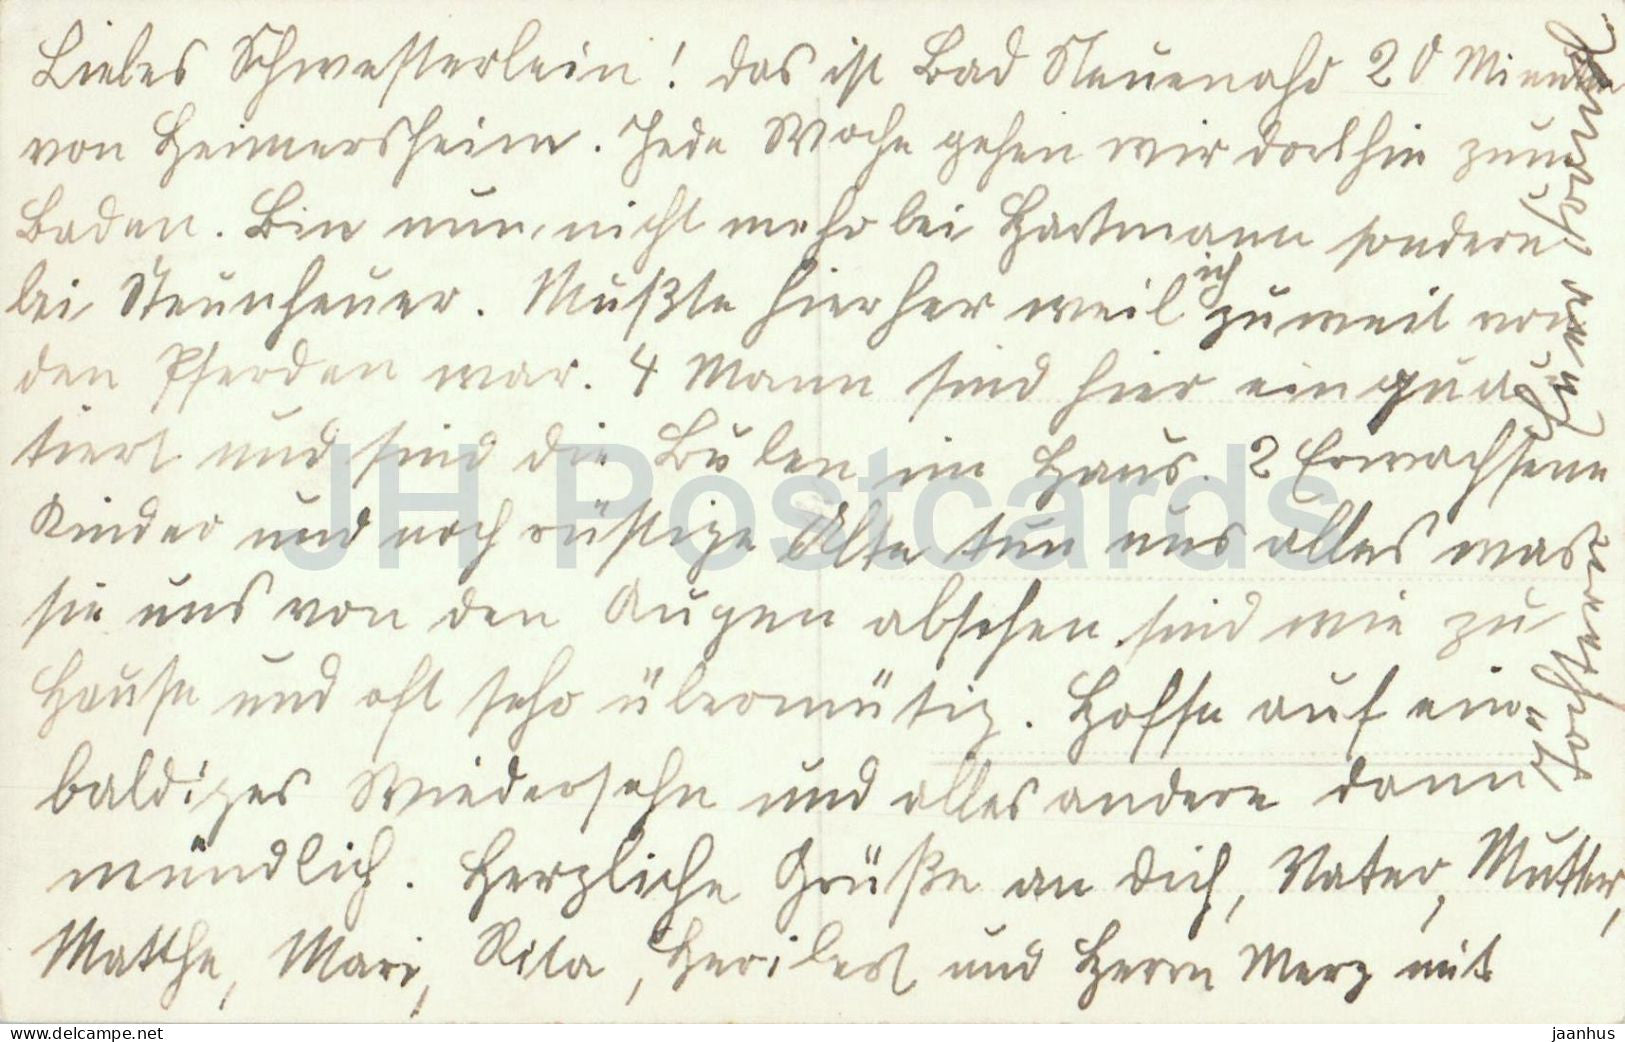 Liebes Schwesterlein! das ist Bad Neuenahr 20 Minuten
von Heimersheim. Jede Woche gehen wir dorthin zum
Baden. Bin nun nicht mehr bei Hartmann sondern
bei Steunheuer. Mußte hierher weil ich zu weit von
den Pferden war. 4 Mann sind hier einquar
tiert und sind die im Haus. 2 Erwachsene
Kinder und noch rüstige Alte tun uns alles was
sie uns von den Augen absehen sind wie zu
Hause und oft sehr übermütig. Hoffe auf ein
baldiges Wiedersehn und alles andere dann
mündlich. Herzliche Grüße an Dich, Vater, Mutter,
Matthe, Mari, Rita, und Herrn Merz mit
JH Postcards
www.delcampe.net
jaanhus